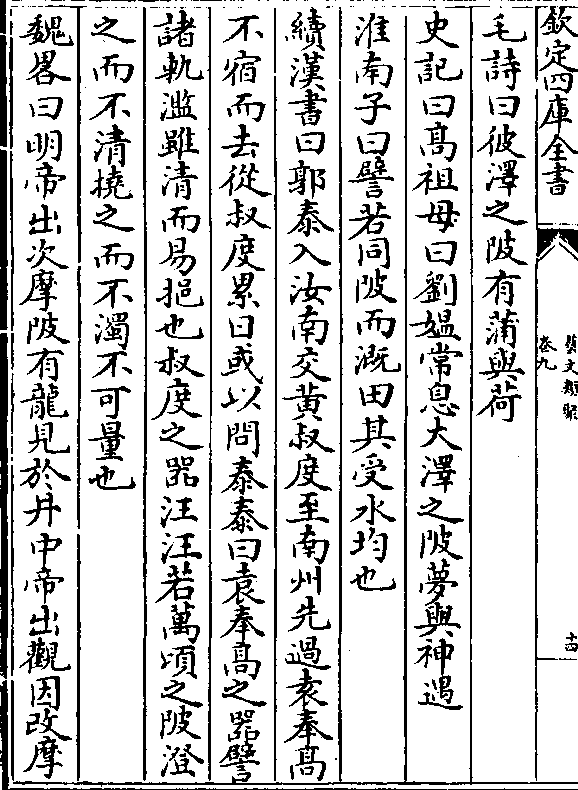 欽定四庫全書
藝文類聚
卷九
十四
毛詩曰彼澤之陂有蒲與荷
史記曰髙祖母曰劉媪常息大澤之陂夢與神遇
淮南子曰譬若同陂而溉田其受水均也
續漢書曰郭泰入汝南交黄叔度至南州先過袁奉髙
不宿而去從叔度累日或以問泰泰曰袁奉髙之器譬
諸軌濫雖清而易挹也叔度之器汪汪若萬頃之陂澄
之而不清撓之而不濁不可量也
魏畧曰明帝出次摩陂有龍見於井中帝出觀因改摩